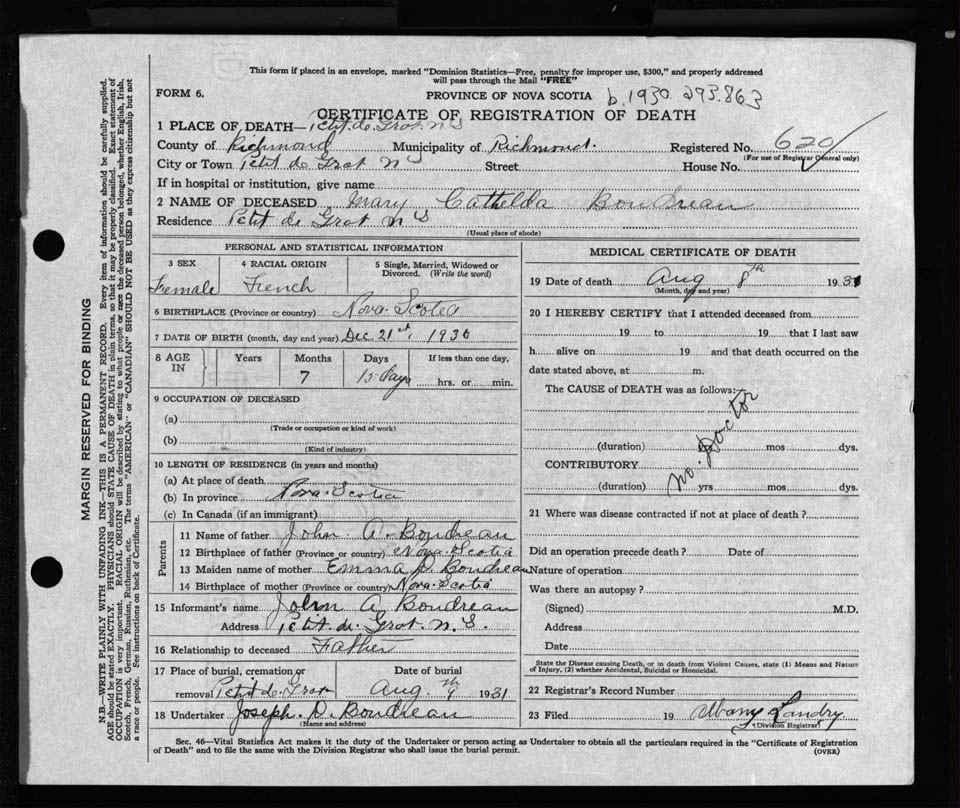 This form if placed in an envelope, marked "Dominion Statistics—Free, penalty for improper use, $300," and properly addressed
will pass through the Mail "FREE"
FORM 6. PROVINCE OF NOVA SCOTIA b. 1930. 293.863
CERTIFICATE OF REGISTRATION OF DEATH
1 PLACE OF DEATH—Petit. de. Grat. N S
County of Richmond Municipality of Richmond. Registered No. 620
(For use of Registrar General only)
City or Town Petit de Grat N S Street House No.
If in hospital or institution, give name
2 NAME OF DECEASED Mary Cathelda Boudreau
Residence Petit de Grat N S
(Usual place of abode)
PERSONAL AND STATISTICAL INFORMATION
3 SEX 4 RACIAL ORIGIN 5 Single, Married, Widowed or
Divorced. (Write the word)
Female French
6 BIRTHPLACE (Province or country) Nova. Scotia
7 DATE OF BIRTH (month, day and year) Dec 21st, 1930
8 AGE IN Years Months Days If less than one day,
7 15 Days hrs. or min.
9 OCCUPATION OF DECEASED
(a)
(Trade or occupation or kind of work)
(b)
(Kind of industry)
10 LENGTH OF RESIDENCE (in years and months)
(a) At place of death
(b) In province Nova. Scotia
(c) In Canada (if an immigrant)
Parents
11 Name of father John. A. Boudreau
12 Birthplace of father (Province or country) Nova. Scotia
13 Maiden name of mother Emma D Boudreau
14 Birthplace of mother (Province or country) Nova. Scotia
15 Informant's name John A Boudreau
Address Petit. de. Grat. N. S.
16 Relationship to deceased Father
17 Place of burial, cremation or Date of burial
removal Petit de Grat Aug. 9th 1931
18 Undertaker Joseph. D. Boudreau
(Name and address)
MEDICAL CERTIFICATE OF DEATH
19 Date of death Aug 8th 1931
(Month, day and year)
20 I HEREBY CERTIFY that I attended deceased from
19 to 19 that I last saw
h alive on 19 and that death occurred on the
date stated above, at m.
The CAUSE of DEATH was as follows:—
No. Doctor
(duration) yrs mos dys.
CONTRIBUTORY
(duration) yrs mos dys.
21 Where was disease contracted if not at place of death?
Did an operation precede death? Date of
Nature of operation
Was there an autopsy?
(Signed) M.D.
Address
Date
State the Disease causing Death, or in death from Violent Causes, state (1) Means and Nature
of Injury, (2) whether Accidental, Suicidal or Homicidal.
22 Registrar's Record Number
23 Filed 19 Albany Landry
(Division Registrar)
Sec. 46—Vital Statistics Act makes it the duty of the Undertaker or person acting as Undertaker to obtain all the particulars required in the "Certificate of Registration
of Death" and to file the same with the Division Registrar who shall issue the burial permit. (OVER)
MARGIN RESERVED FOR BINDING
N.B.—WRITE PLAINLY WITH UNFADING INK—THIS IS A PERMANENT RECORD. Every item of information should be carefully supplied.
AGE should be stated EXACTLY. PHYSICIANS should STATE CAUSE OF DEATH in plain terms, so that it may be properly classified. Exact statement of
OCCUPATION is very important. RACIAL ORIGIN will be described by stating to what people or race the deceased person belonged, whether English, Irish,
Scotch, French, German, Russian, Ruthenian, etc. The terms "AMERICAN" or "CANADIAN" SHOULD NOT BE USED as they express citizenship but not
a race or people. See instructions on back of Certificate.